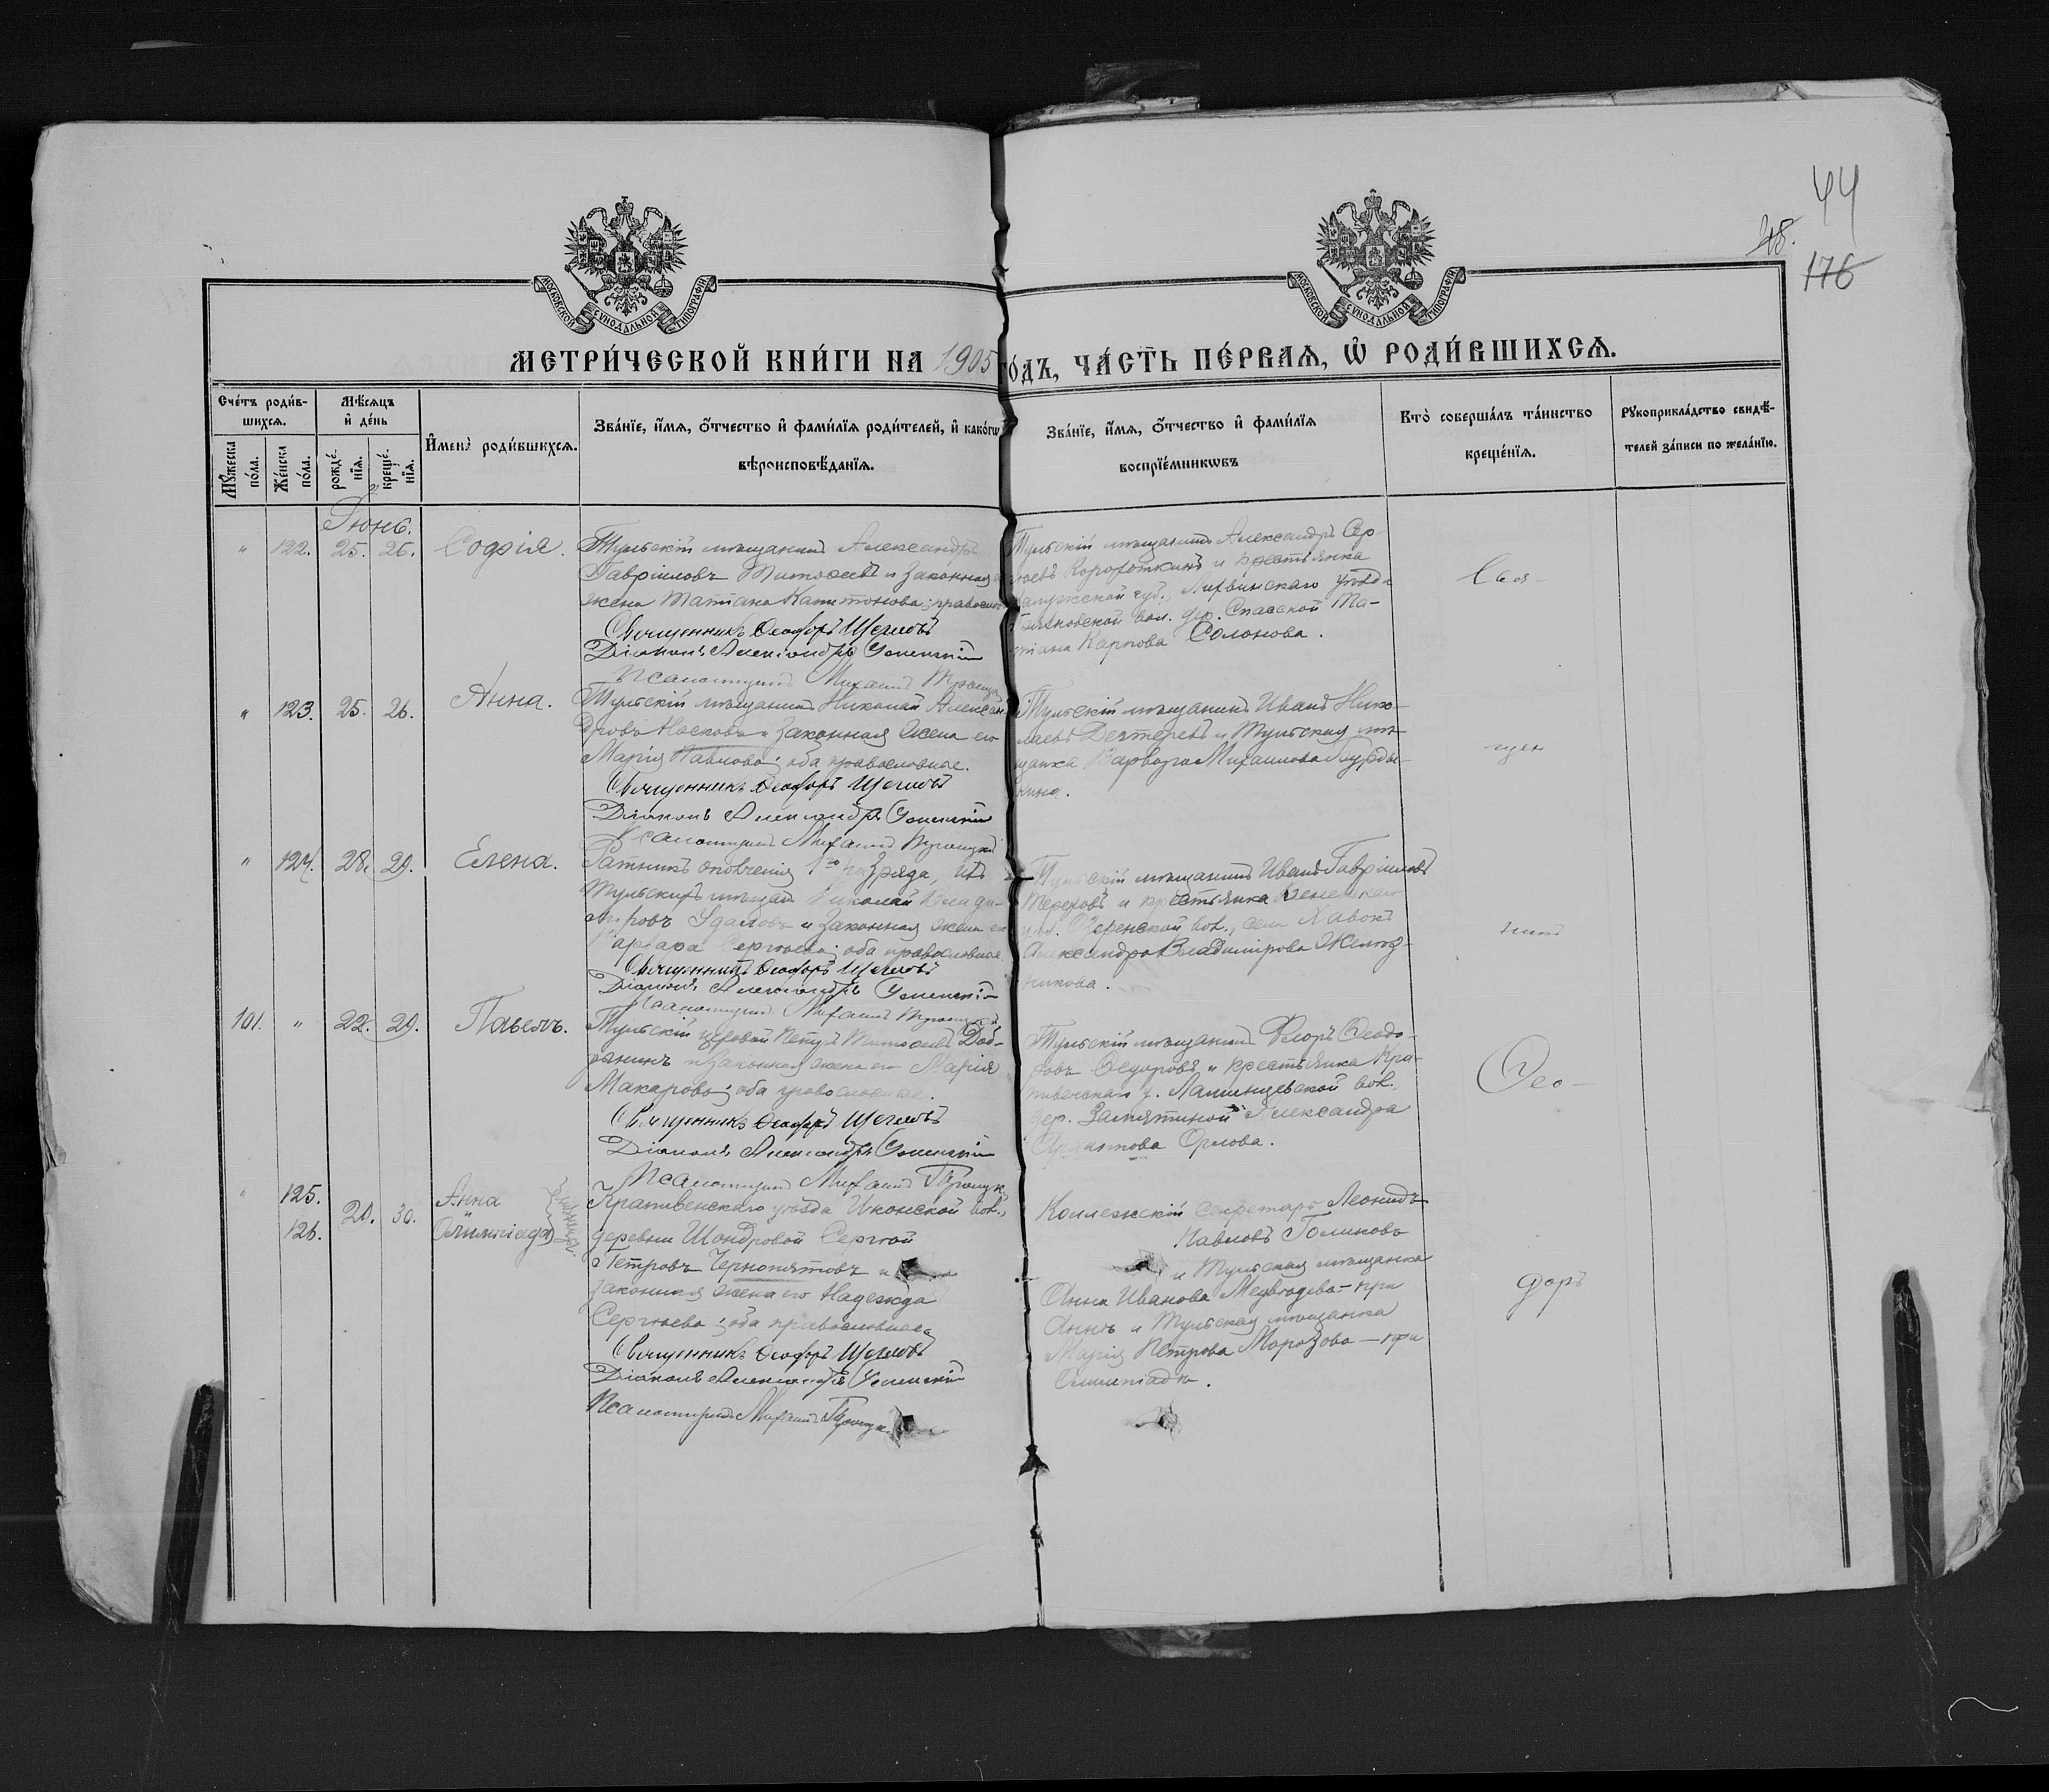 44
28.
176
МОСКОВСКОЙ СѴНОДАЛЬНОЙ ТИПОГРАФІИ
МОСКОВСКОЙ СѴНОДАЛЬНОЙ ТИПОГРАФІИ
МЕТРИ́ЧЕСКОЙ КНИ́ГИ НА 1905 ГО́ДЪ, ЧА́СТЬ ПЕ́РВАЯ, Ѽ РОДИ́ВШИХСЯ.
Сче́тъ роди́в-
шихся.
Мѣсяцъ
и де́нь
Му́жеска по́ла.
Же́нска по́ла.
рожде́-
нїя.
креще́-
нїя.
И҆мена̀ роди́вшихся.
Зва́нїе, и҆́мя, ѻ҆́тчество и҆ фами́лїя роди́телей, и҆ како́гѡ
вѣроисповѣ́данїя.
Зва́нїе, и҆́мя, ѻ҆́тчество и҆ фами́лїя
воспрїе́мникѡвъ
Кто̀ соверша́лъ та́инство
креще́нїя.
Рукоприкла́дство свидѣ́-
телей за́писи по жела́нїю.
Іюнь.
" 122. 25. 26. Софія.
Тульскій мѣщанинъ Александръ
Гавріиловъ Тимоѳеевъ и законная
жена Татіана Капитонова; православ
Священникъ Ѳеодоръ Щегловъ
Діаконъ Александръ Успенскій
Псаломщикъ Михаилъ Троицк
Тульскій мѣщанинъ Александръ Сер-
гѣевъ Короткинъ и крестьянка
Калужской губ., Лихвинскаго уѣзда
вол. дер. Спасской Та-
тіана Карпова Солонова.
Свя-
" 123. 25. 26. Анна.
Тульскій мѣщанинъ Николай Алексан-
дровъ Носковъ и законная жена его
Марія Павлова; оба православные.
Священникъ Ѳеодоръ Щегловъ
Діаконъ Александръ Успенскій
Псаломщикъ Михаилъ Троицкій
Тульскій мѣщанинъ Иванъ Нико-
лаевъ Дехтеревъ и Тульская мѣ-
щанка Варвара Михаилова
кина.
щен
" 124. 28. 29. Елена.
Ратникъ ополченія 1го разряда, изъ
Тульскихъ мѣщанъ Николай Влади-
міровъ Удаловъ и законная жена его
Варвара Сергѣева; оба православные.
Священникъ Ѳеодоръ Щегловъ
Діаконъ Александръ Успенскій
Псаломщикъ Михаилъ Троицкій
Тульскій мѣщанинъ Иванъ Гавріиловъ
Тереховъ и крестьянка Веневскаго
у. Озеренской вол., села Хавокъ
Александра Владимірова Желѣз-
никова.
никъ
101. " 22. 29. Павелъ.
Тульскій цеховой Петръ Тимоѳеевъ Доб-
рынинъ и законная жена его Марія
Макарова; оба православные.
Священникъ Ѳеодоръ Щегловъ
Діаконъ Александръ Успенскій
Псаломщикъ Михаилъ Троицк
Тульскій мѣщанинъ Флоръ Ѳеодо-
ровъ Ѳедоровъ и крестьянка Кра-
пивенскаго у. вол.
дер. Замятиной Александра
Орлова.
Ѳео-
" 125. 126. 29. 30. Анна
Олимпіада близнецы.
Крапивенскаго уѣзда Иконской вол.,
деревни Шондровой Сергѣй
Петровъ Чернопятовъ и
законная жена его Надежда
Сергѣева; оба православные.
Священникъ Ѳеодоръ Щегловъ
Діаконъ Александръ Успенскій
Псаломщикъ Михаилъ Троицк
Коллежскій секретарь Леонидъ
Павловъ Голиковъ
и Тульская мѣщанка
Анна Иванова Медвѣдева – при
Аннѣ и Тульская мѣщанка
Марія Петрова Морозова — при
Олимпіадѣ.
доръ